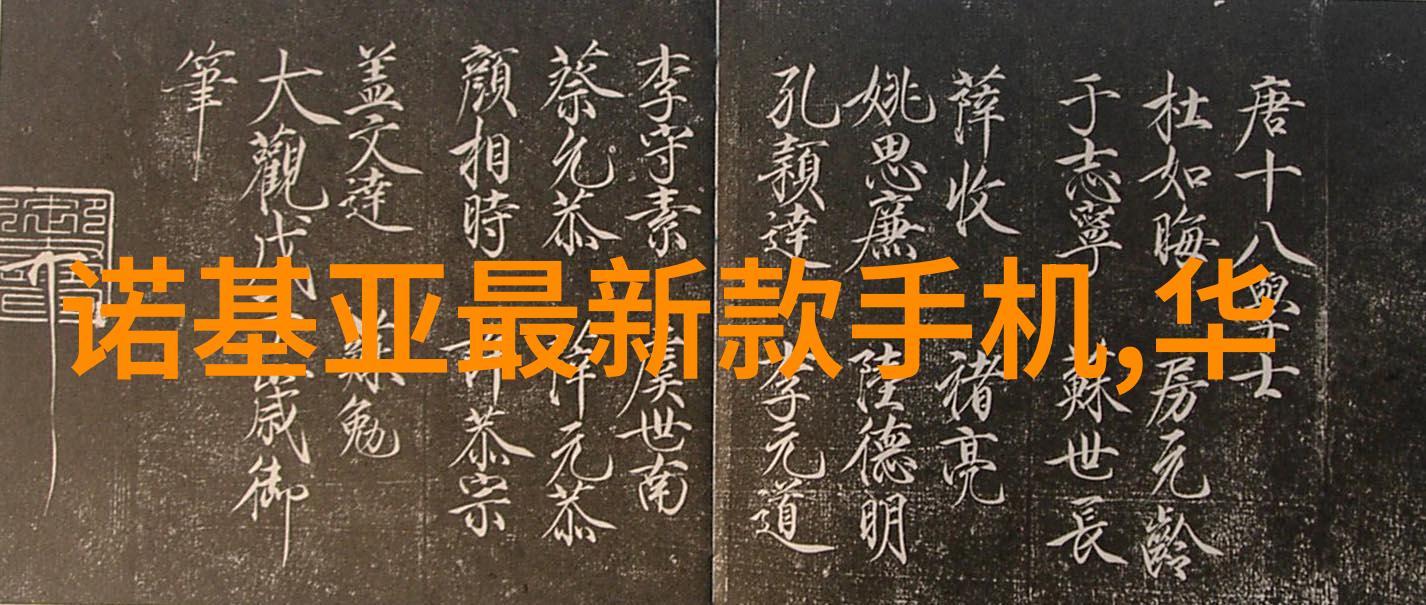 唐十八學士
杜如晦 房元齡
于志寧 蘇世長
薛收 褚亮
姚思廉 陸德明
孔穎達 李元道
李守素 虞世南
蔡允恭 薛元敬
顏相時 許恭宗
盖文達 蘇勉
大觀戊 歲御
筆
诺基亚最新款手机,华